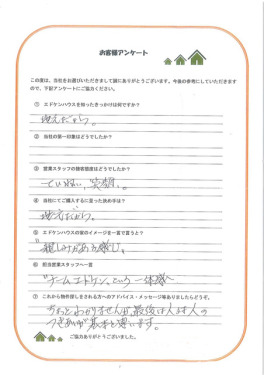 お客様アンケート
この度は、当社をお選びいただきまして誠にありがとうございます。今後の参考にしていただきます
ので、下記アンケートにご協力ください。
① エドケンハウスを知ったきっかけは何ですか？
地元だから。
② 当社の第一印象はどうでしたか？
③ 営業スタッフの接客態度はどうでしたか？
ていねい、笑顔。
④ 当社にてご購入するに至った決め手は？
地元だから。
⑤ エドケンハウスの家のイメージを一言で言うと？
親しみがある感じ。
⑥ 担当営業スタッフへ一言
"チームエドケン"という一体感へ
⑦ これから物件探しをされる方へのアドバイス・メッセージ等ありましたらどうぞ。
ちょっとわかりませんが、最後は人対人の
つきあいが基本と思います。
ご協力ありがとうございました。